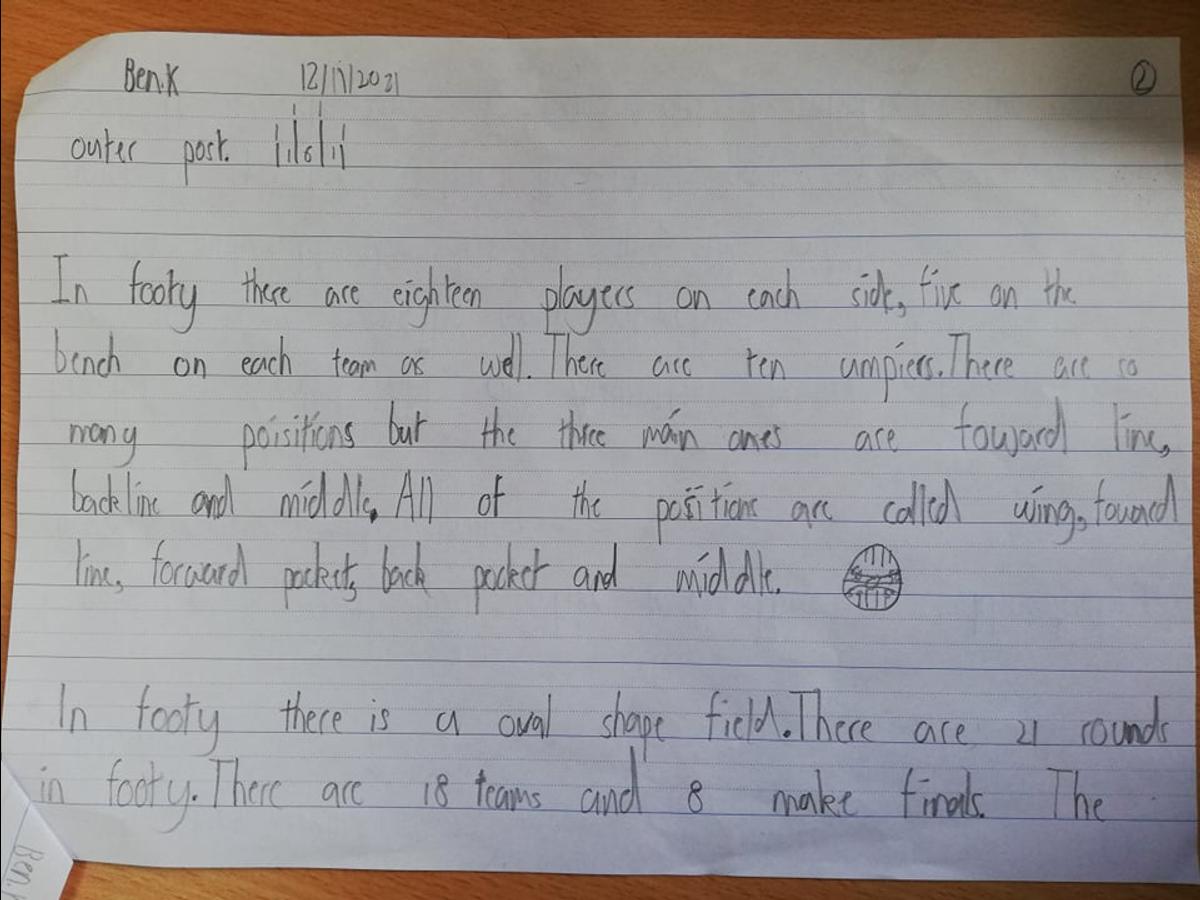 Ben.K 12/11/2021 2
outer post. 1 6 1
In footy there are eighteen players on each side, five on the
bench on each team as well. There are ten umpiers. There are so
many poisitions but the three main ones are foward line,
backline and middle. All of the positions are called wing, foward
line, forward pocket, back pocket and middle.
In footy there is a oval shape field. There are 21 rounds
in footy. There are 18 teams and 8 make finals. The
Ben.